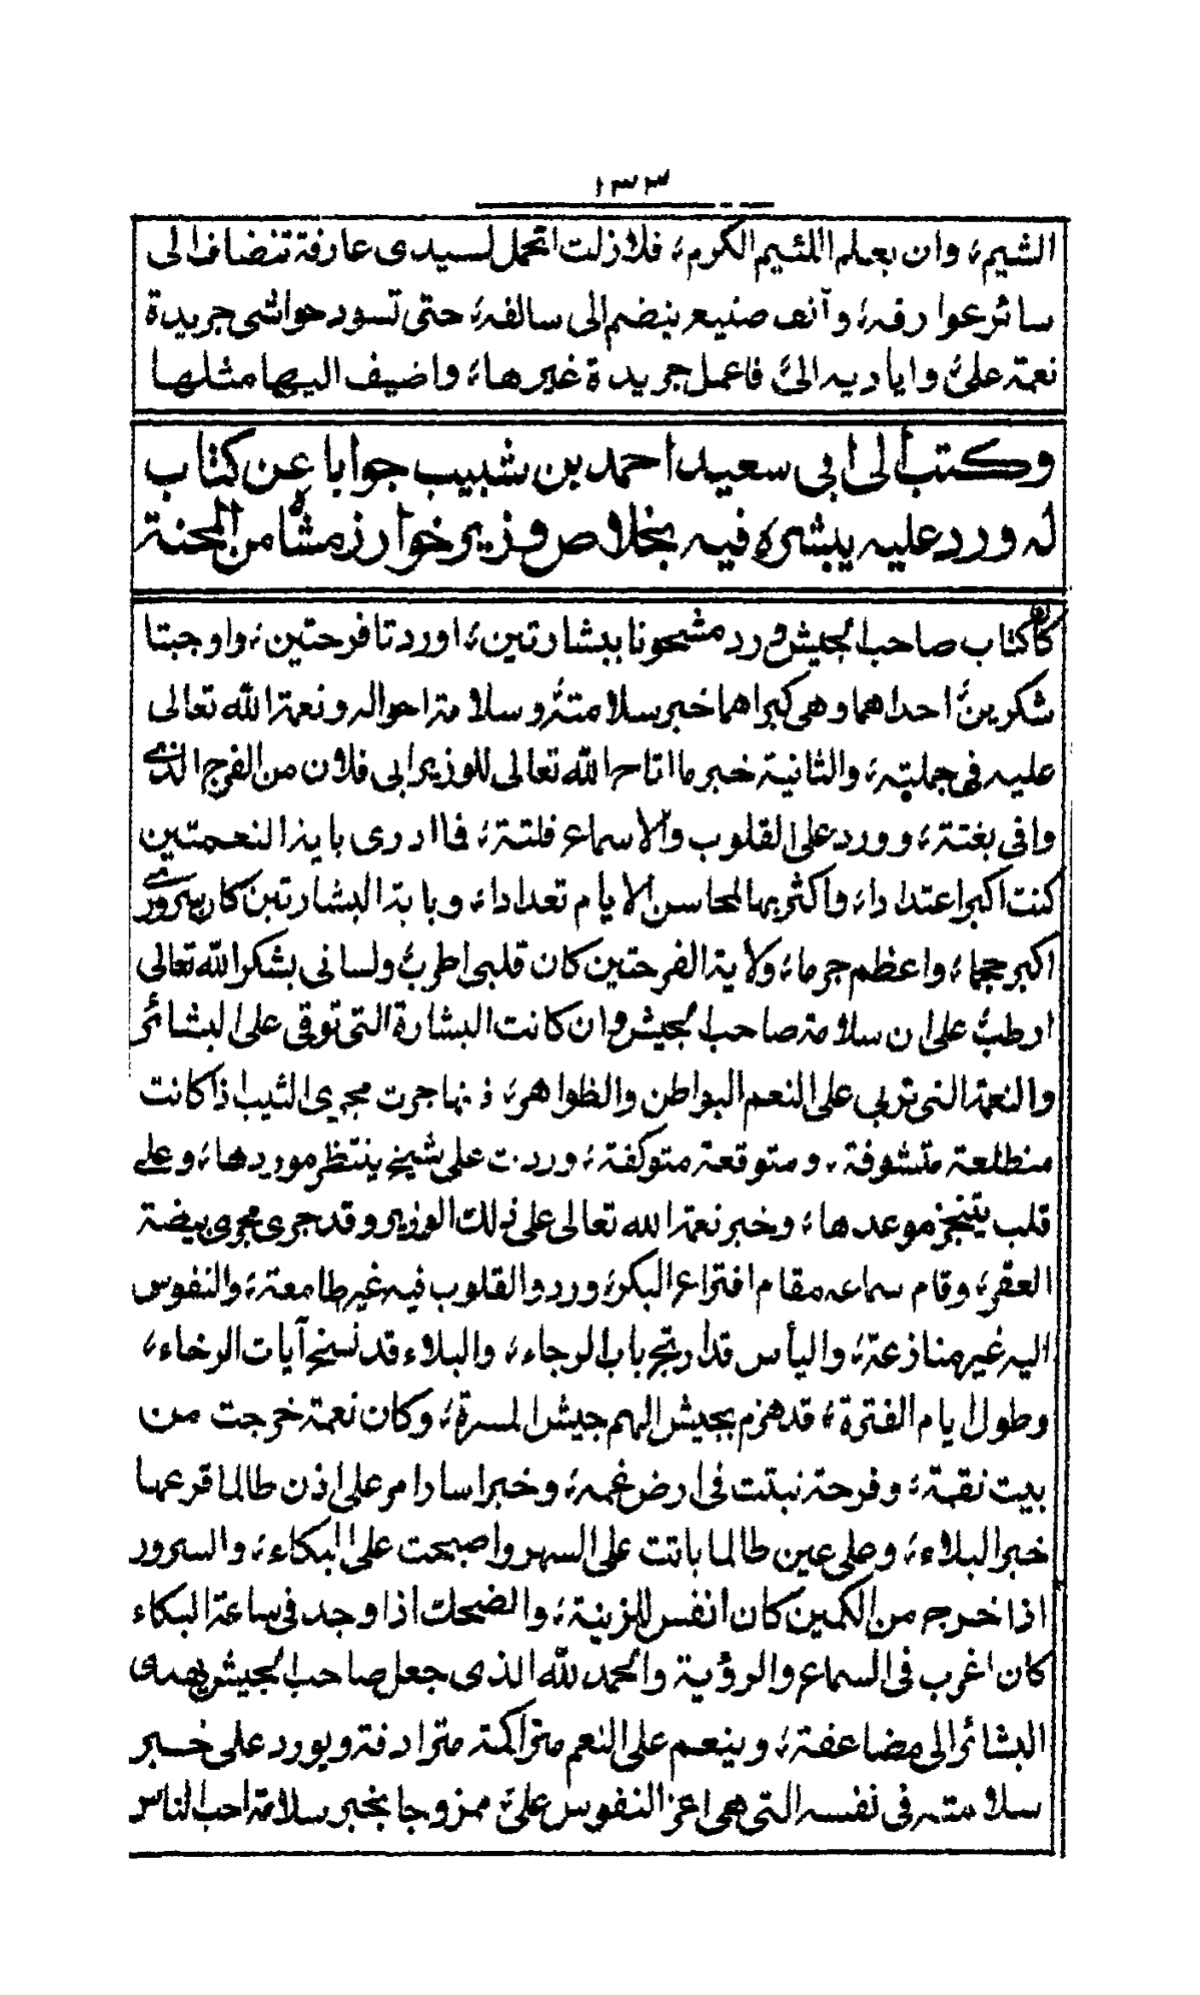 ١٣٣
الشيم، وان يعلم اللئيم الكرم، فلا زلت اتحمل لسيدى عارفة تنضاف الى
سائر عوارفه، وآنف صنيع ينضم الى سالفه، حتى تسود حواشى جريدة
نعمته علىّ وأياديه الىّ فاعمل جريدة غيرها، واضيف اليها مثلها
وكتب الى ابى سعيد احمد بن شبيب جوابا عن كتاب
له ورد عليه يبشره فيه بخلاص وزير خوارزمشاه من المحنة
كتاب صاحب الجيش ورد مشحونا ببشارتين، اوردتا فرحتين، واوجبتا
شكرين، احداهما وهى كبراهما خبر سلامته وسلامة احواله ونعمة الله تعالى
عليه فى جملته، والثانية خبر ما اتاحه الله تعالى للوزير ابى فلان من الفرج الذى
وافى بغتة، وورد على القلوب والاسماع فلتة، فما ادرى باية النعمتين
كنت اكبر اعتدادا، واكثر بها لمحاسن الايام تعدادا، وباية البشارتين كان سرورى
اكبر حجما، واعظم جرما، ولاية الفرحتين كان قلبى اطرب ولسانى بشكر الله تعالى
ارطب على ان سلامة صاحب الجيش وان كانت البشارة التى توفى على البشائر
والنعمة التى تربى على النعم البواطن والظواهر، فانها جرت مجرى الثيب اذ كانت
متطلعة متشوفة، ومتوقعة متوكفة، وردت على شيخ ينتظر موردها، وعلى
قلب يتنجز موعدها، وخبر نعمة الله تعالى على ذلك الوزير وقد جرى مجرى بيضة
العقر، وقام سماعه مقام افتراع البكر، ورد والقلوب فيه غير طامعة، والنفوس
اليه غير منازعة، واليأس قد ارتج باب الرجاء، والبلاء قد نسخ آيات الرخاء،
وطول ايام الفترة، قد هزم بجيش الهم جيش المسرة، وكان نعمة خرجت من
بيت نقمة، وفرحة نبتت فى ارض غمه، وخبرا سارا مر على اذن طالما قرعها
خبر البلاء، وعلى عين طالما باتت على السهر واصبحت على البكاء، والسرور
اذا خرج من الكمين كان انفس للزينة، والضحك اذا وجد فى ساعة البكاء
كان اغرب فى السماع والرؤية والحمد لله الذى جعل صاحب الجيش يهدى
البشائر الى مضاعفة، وينعم على النعم متراكمة مترادفة ويورد على خبر
سلامته فى نفسه التى هى اعز النفوس علىّ ممزوجا بخبر سلامة احب الناس